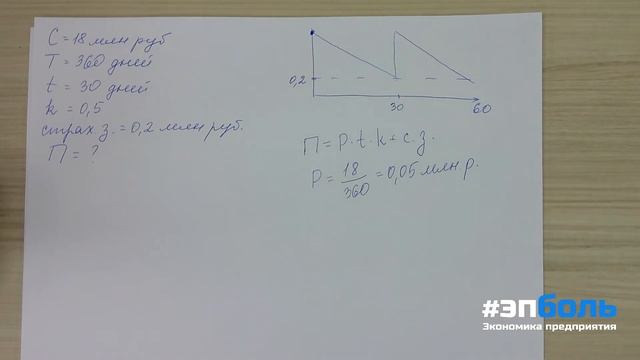 C = 18 млн руб
T = 360 дней
t = 30 дней
k = 0,5
страх з. = 0,2 млн руб.
П = ?
0,2
30
60
П = P·t·k + с.з.
P = 18/360 = 0,05 млн р.
#эпболь
Экономика предприятия